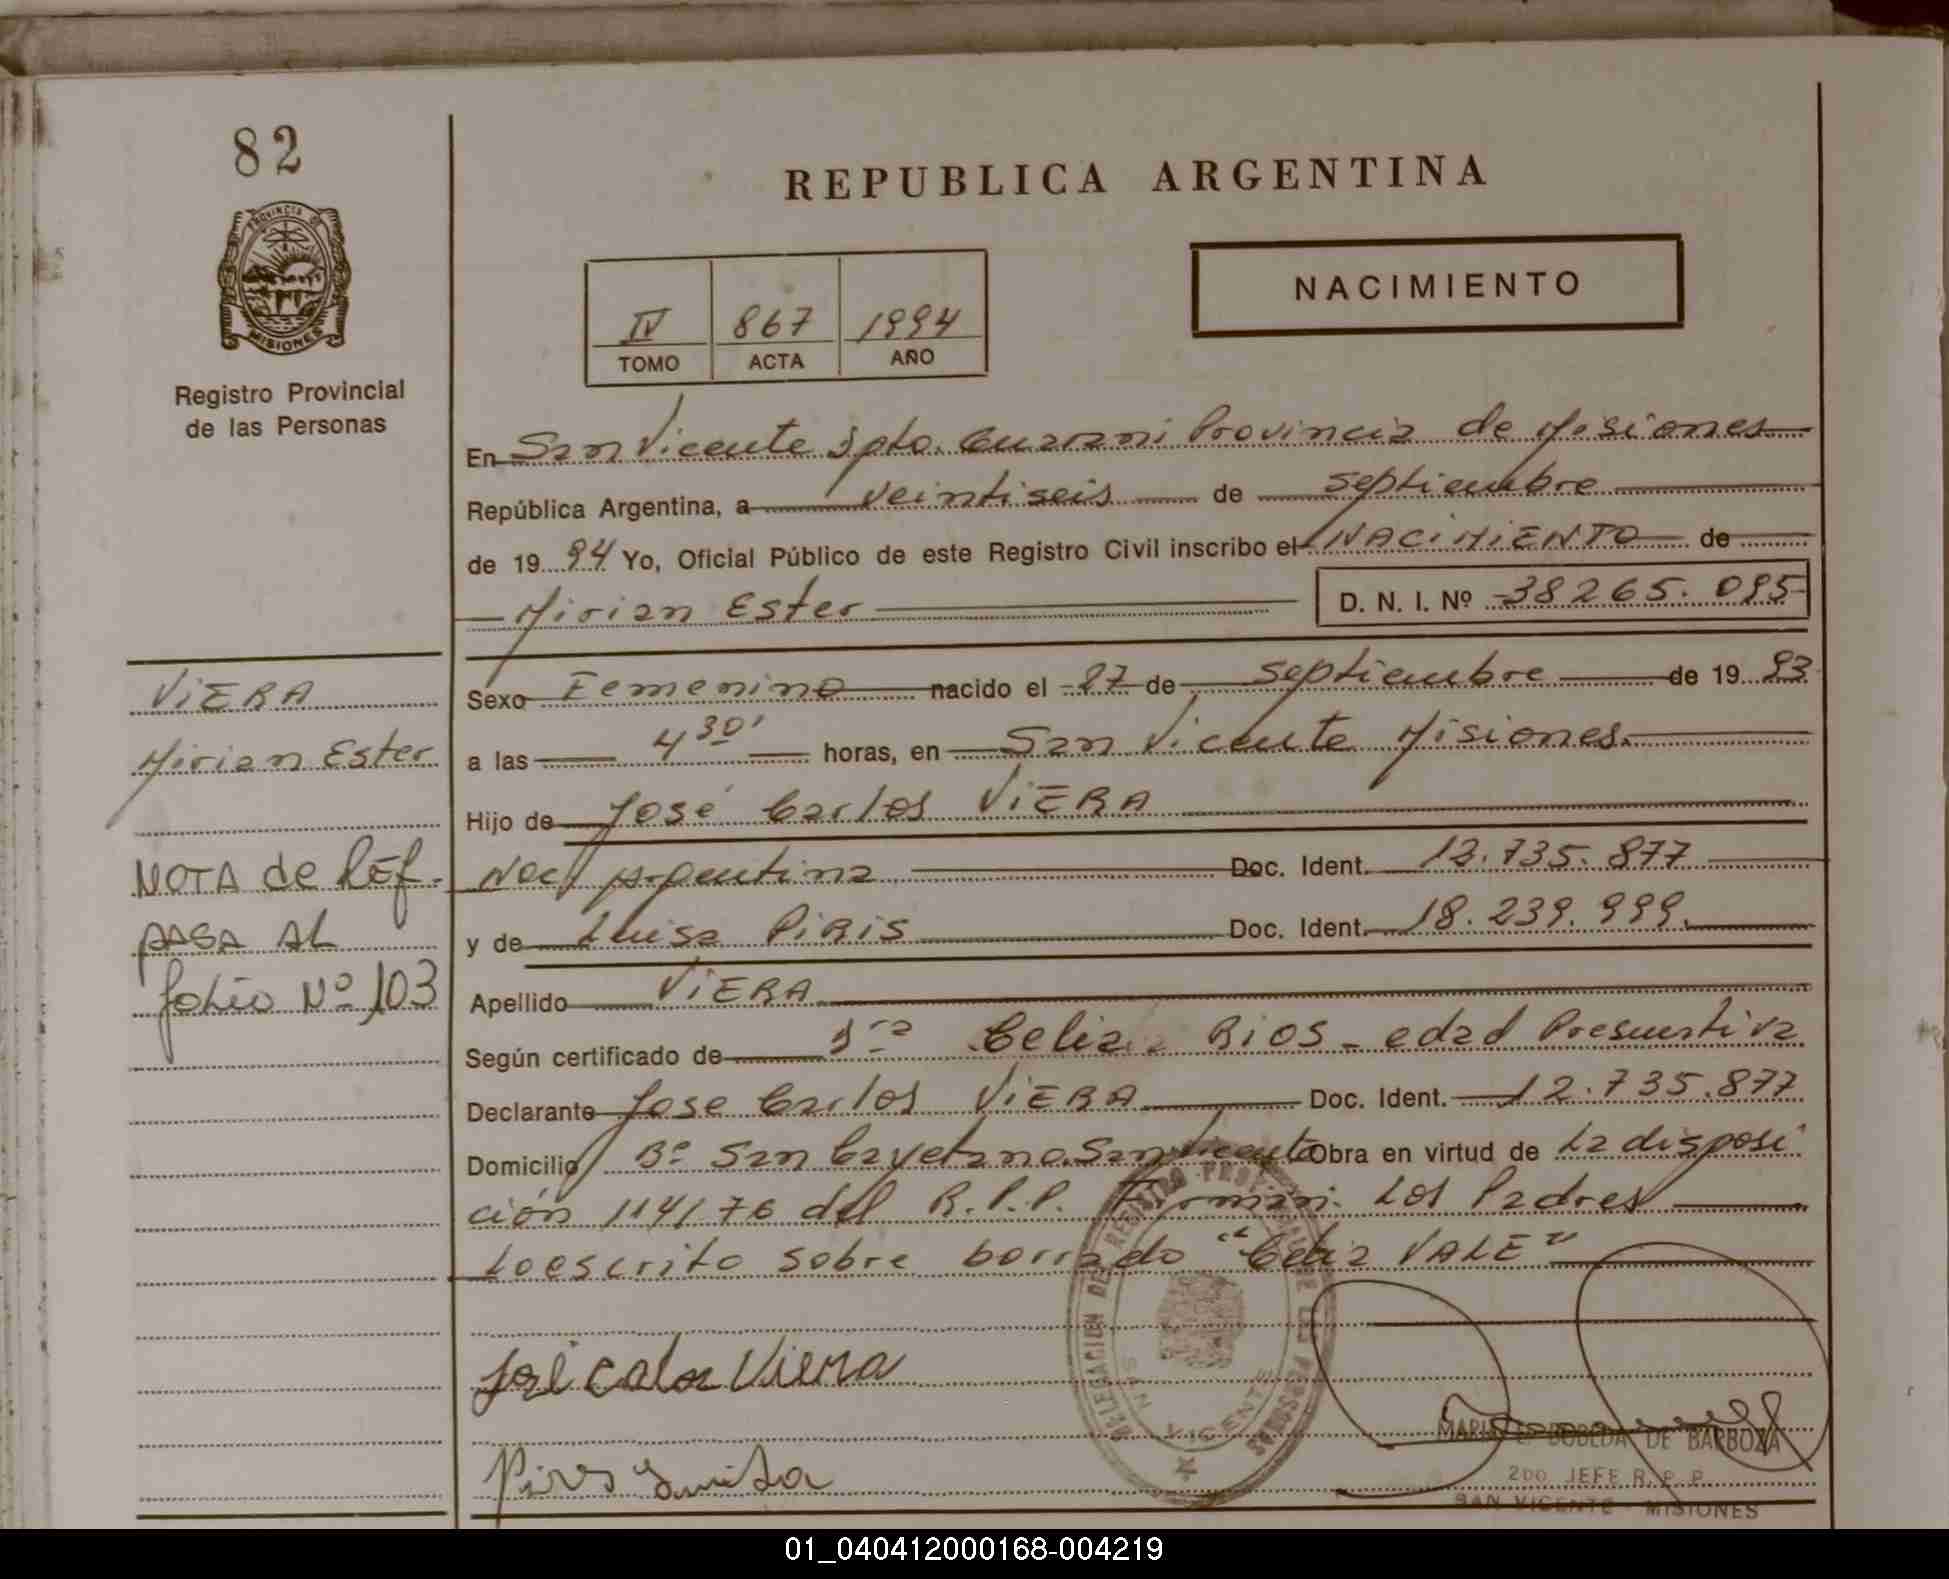 82
PROVINCIA DE
MISIONES
Registro Provincial
de las Personas
REPUBLICA ARGENTINA
NACIMIENTO
IV 867 1994
TOMO ACTA AÑO
En San Vicente Dpto. Guarani Provincia de Misiones
República Argentina, a veintiseis de septiembre
de 1994 Yo, Oficial Público de este Registro Civil inscribo el NACIMIENTO de
Mirian Ester D. N. I. Nº 38265.095
Sexo Femenino nacido el 27 de septiembre de 1993
a las 4 30' horas, en San Vicente Misiones.
Hijo de José Carlos VIERA
Nac/ Argentina Doc. Ident. 12.735.877
y de Luisa PIRIS Doc. Ident. 18.239.999.
Apellido VIERA
Según certificado de Dra Celia RIOS - edad Presuntiva
Declarante Jose Carlos VIERA Doc. Ident. 12.735.877
Domicilio Bº San Cayetano San Vicente Obra en virtud de La disposi
ción 114/76 del R.P.P. Firman. Los Padres
Lo escrito sobre borrado "Celia VALE"
VIERA
Mirian Ester
NOTA de REF.
PASA AL
folio Nº 103
José Calos Viera
Piris Luisa
DELEGACION DEL REGISTRO PROVINCIAL DE LAS PERSONAS
SAN VICENTE
MARIA E. BOBEDA DE BARBOZA
2DO JEFE R. P. P.
SAN VICENTE - MISIONES
01_040412000168-004219